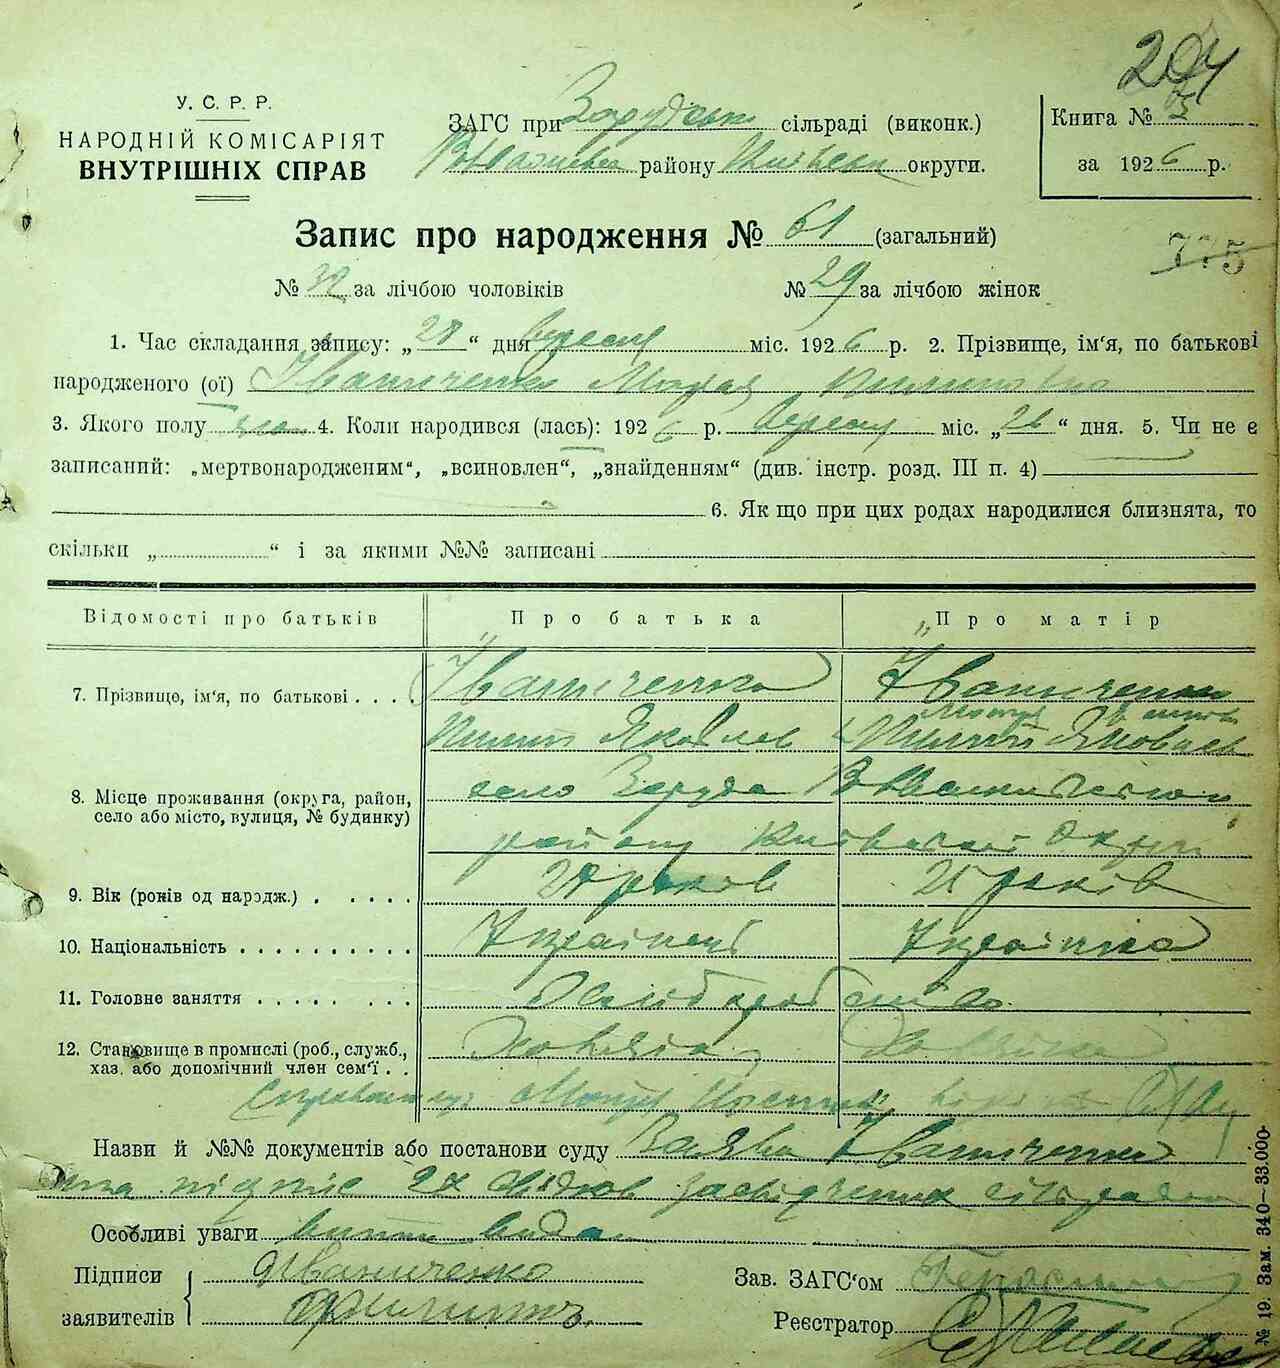 204
У. С. Р. Р.
НАРОДНІЙ КОМІСАРІЯТ
ВНУТРІШНІХ СПРАВ
ЗАГС при Зарудськ сільраді (виконк.)
району Київськ округи.
Книга №
за 1926 р.
Запис про народження № 61 (загальний)
775
№ 32 за лічбою чоловіків № 29 за лічбою жінок
1. Час складання запису: „28“ дня вересня міс. 1926 р. 2. Прізвище, ім‘я, по батькові
народженого (ої) Іваниченко Марія Пилиповна
3. Якого полу жін 4. Коли народився (лась): 1926 р. вересня міс. „26“ дня. 5. Чи не є
записаний: „мертвонародженим“, „всиновлен“, „знайденням“ (див. інстр. розд. III п. 4)
6. Як що при цих родах народилися близнята, то
скільки „ “ і за якими №№ записані
Відомості про батьків Про батька Про матір
7. Прізвище, ім‘я, по батькові Іваниченко Іваниченко
Пилип Яковлев Пилип Яковлев
8. Місце проживання (округа, район, село або місто, вулиця, № будинку) село Заруддя
району Київської Округи
9. Вік (років од народж.) 29 років 25 років
10. Національність Українець Українка
11. Головне заняття Хліборобство
12. Становище в промислі (роб., служб., хаз. або допомічний член сем‘ї Хозяїн
Назви й №№ документів або постанови суду Заява Іваниченка
підпис 2х свідков засвідчених сільрадою
Особливі уваги
Підписи
заявителів
Іваниченко
Филиппъ.
Зав. ЗАГС‘ом
Реєстратор
№ 19. Зам. 340—33.000.